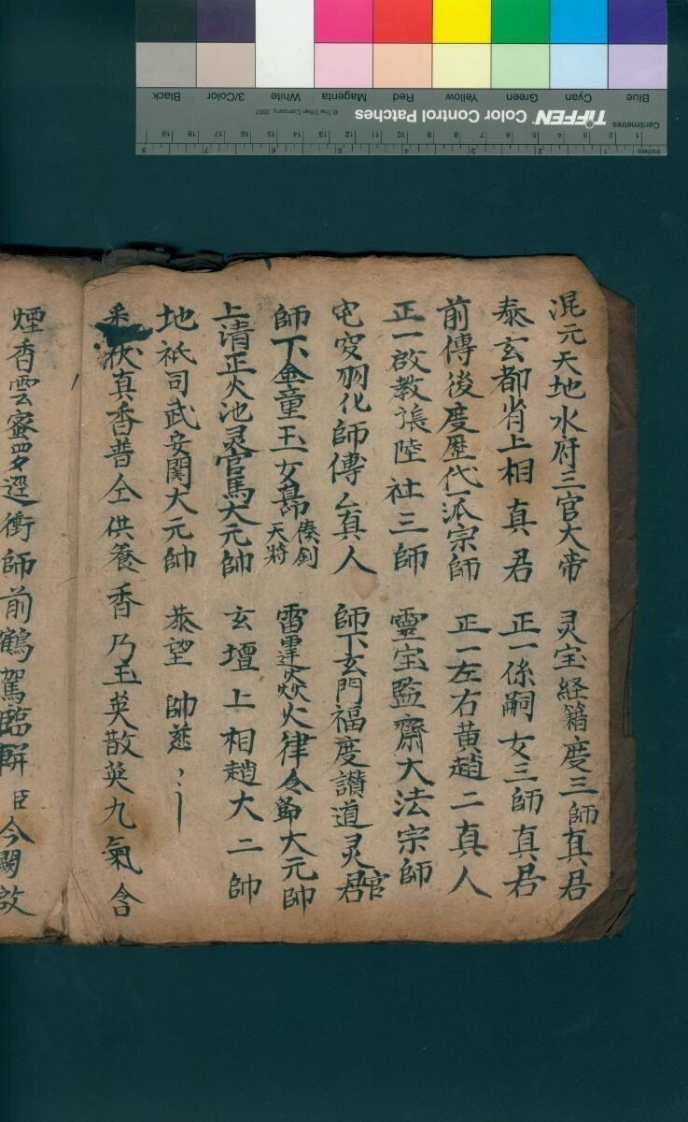 混元天地水府三官大帝 灵宝経籍度三師真君
泰玄都省上相真君 正一係嗣女三師真君
前傳後度歴代派宗師 正一左右黃趙二真人
正一啟教張陸祉三師 靈宝監齋大法宗師
羽化師傅厶真人 師下玄門福度讚道灵官君
師下金童玉女 天將 雷霆火律令大元帥
上清正火池灵官馬大元帥 玄壇上相趙大二帥
地祇司武安関大元帥 恭望 帥慈
伏真香普仝供養 香乃玉英散英九氣含
煙香雲密羅遥衝師前鶴駕臨軿臣今關啟
Inches
Centimetres
TIFFEN Color Control Patches
© The Tiffen Company, 2007
Blue Cyan Green Yellow Red Magenta White 3/Color Black